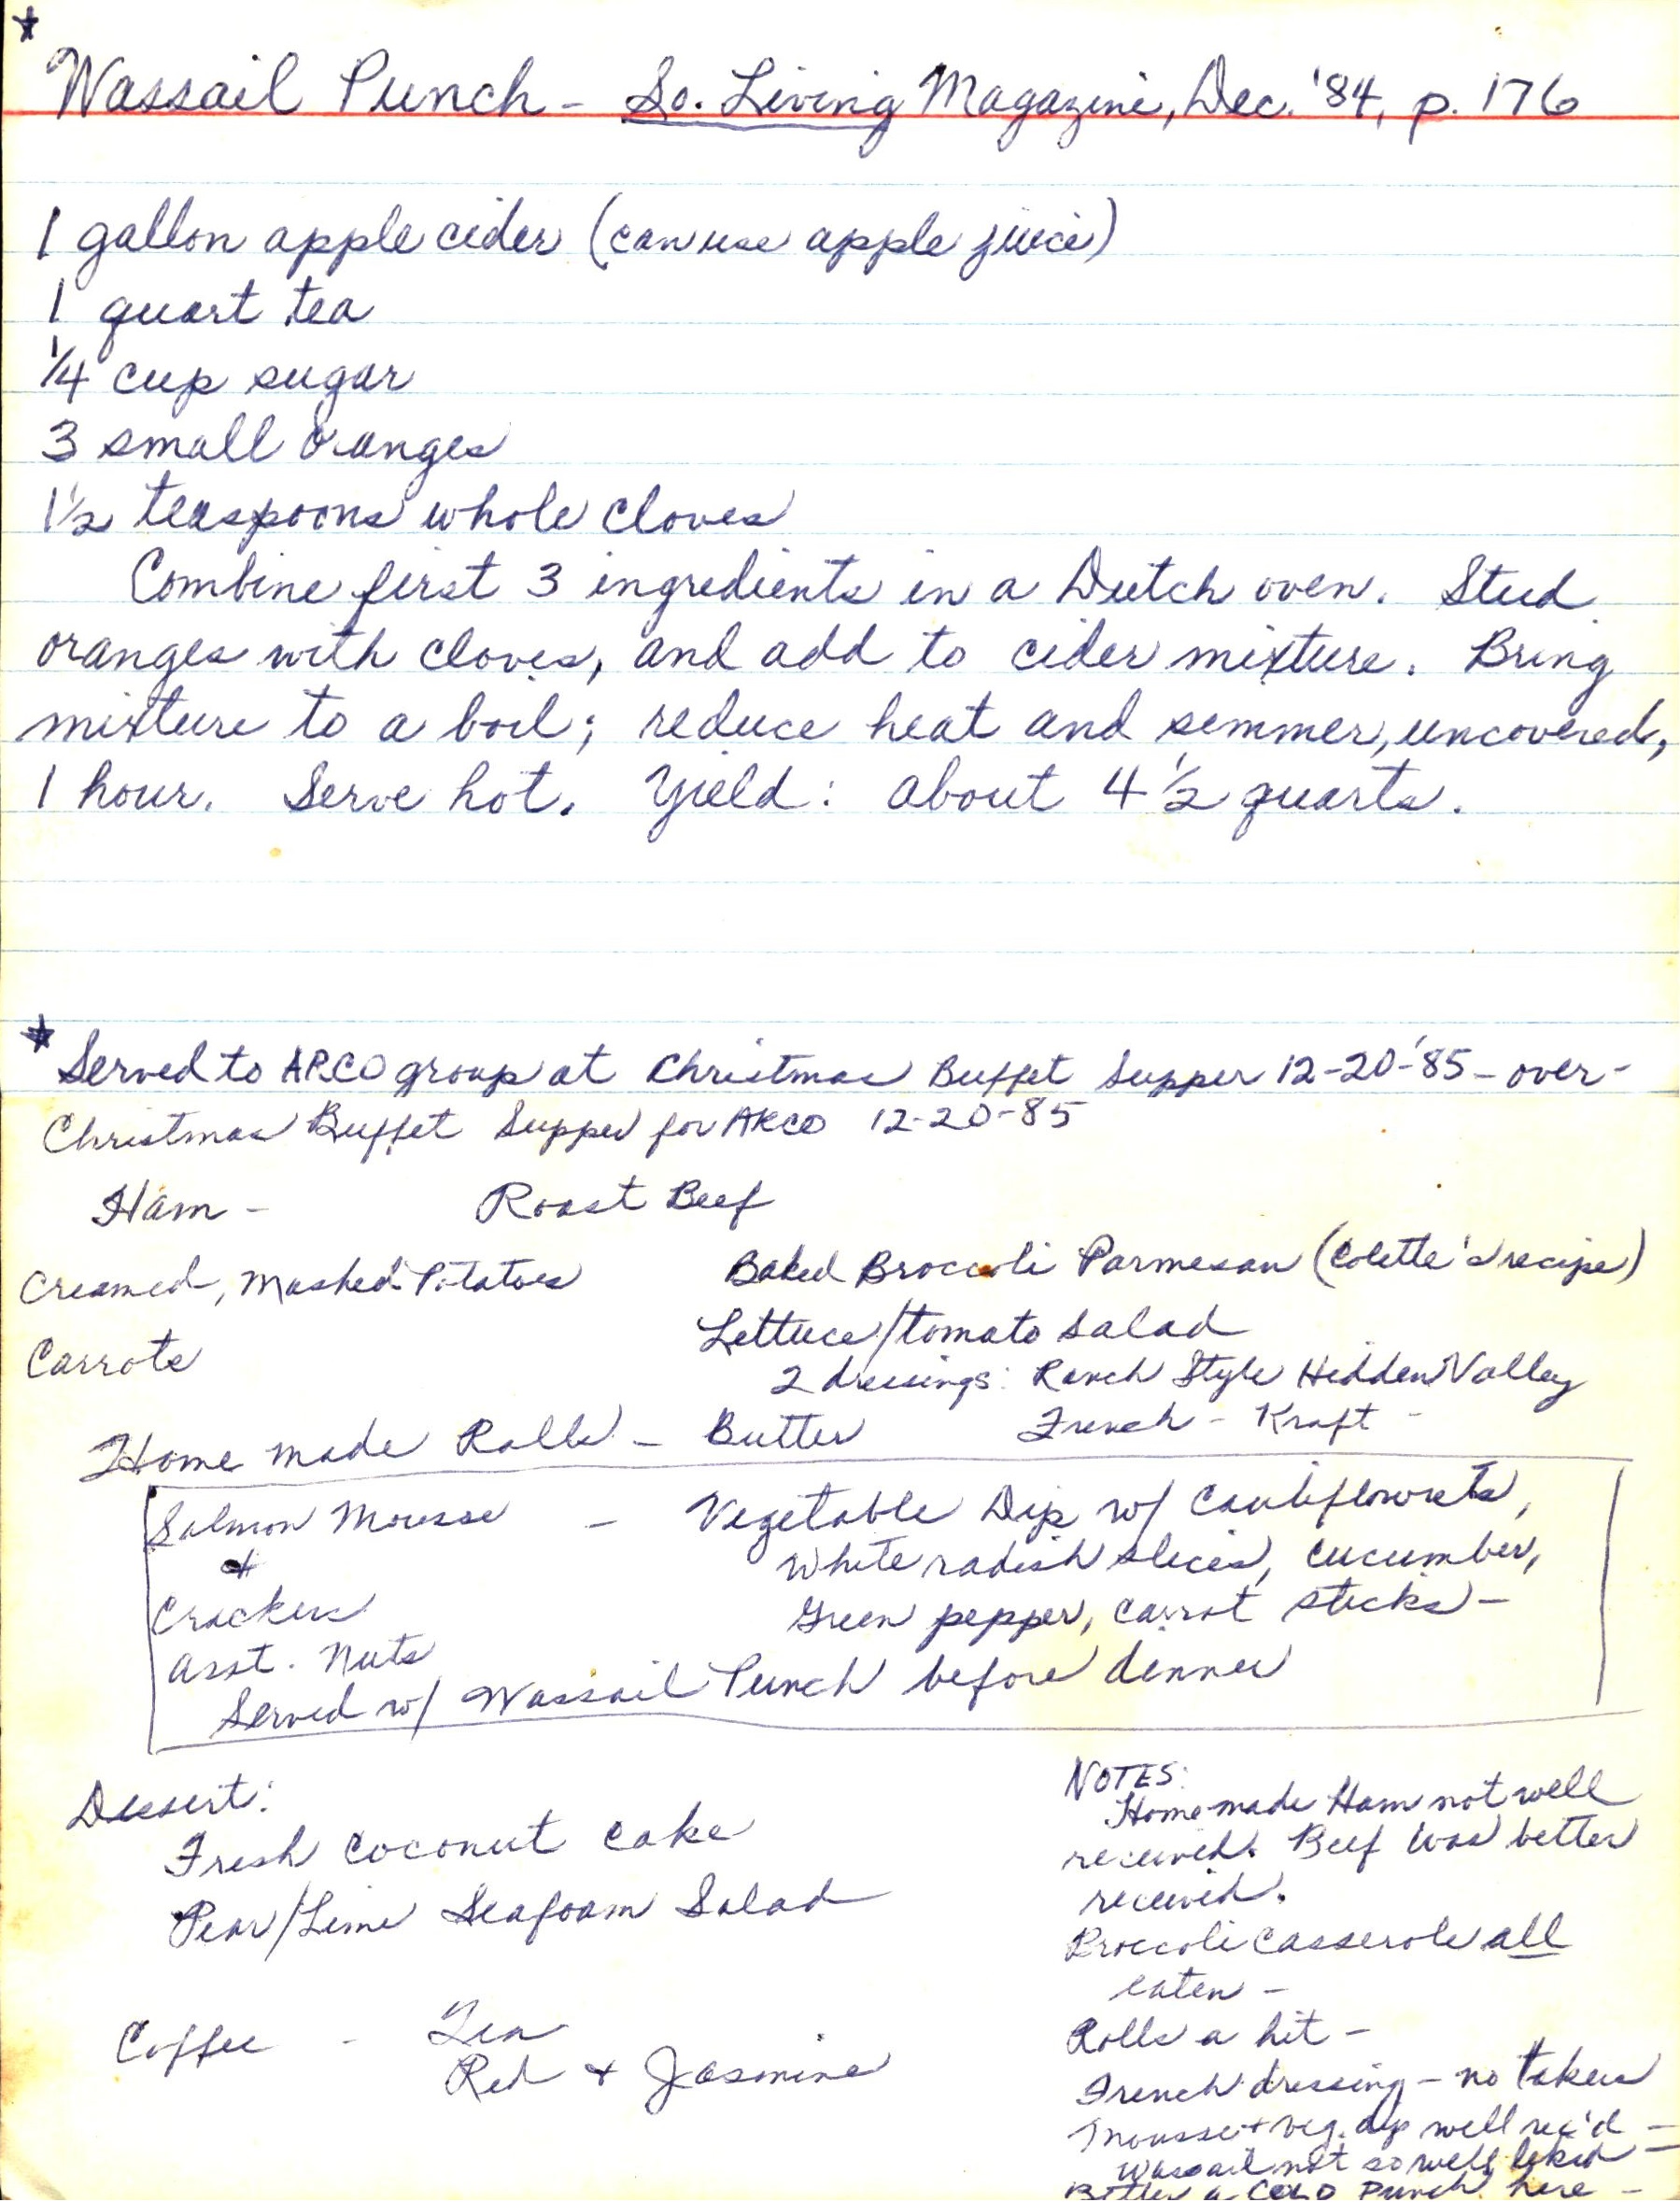 *
Wassail Punch - So. Living Magazine, Dec. '84, p. 176
1 gallon apple cider (can use apple juice)
1 quart tea
1/4 cup sugar
3 small oranges
1 1/2 teaspoons whole cloves
Combine first 3 ingredients in a Dutch oven. Stud
oranges with cloves, and add to cider mixture. Bring
mixture to a boil; reduce heat and simmer, uncovered,
1 hour. Serve hot. Yield: about 4 1/2 quarts.
* Served to ARCO group at Christmas Buffet Supper 12-20-'85 - over -
Christmas Buffet Supper for ARCO 12-20-85
Ham - Roast Beef
Creamed, Mashed Potatoes
Baked Broccoli Parmesan (Colette's recipe)
Carrots
Lettuce/tomato salad
2 dressings: Ranch Style Hidden Valley
French - Kraft -
Home made Rolls - Butter
Salmon Mousse - Vegetable Dip w/ Cauliflowrets,
& White radish slices, cucumber,
Crackers Green pepper, carrot sticks -
Asst. Nuts
Served w/ Wassail Punch before dinner
Dessert:
Fresh Coconut Cake
Pear/Lime Seafoam Salad
Coffee - Tea
Red + Jasmine
NOTES:
Homemade Ham not well
received. Beef was better
received.
Broccoli Casserole all
eaten -
Rolls a hit -
French dressing - no takers
Mousse + veg. dip well rec'd -
Wassail not so well liked -
Better a COLD Punch here -